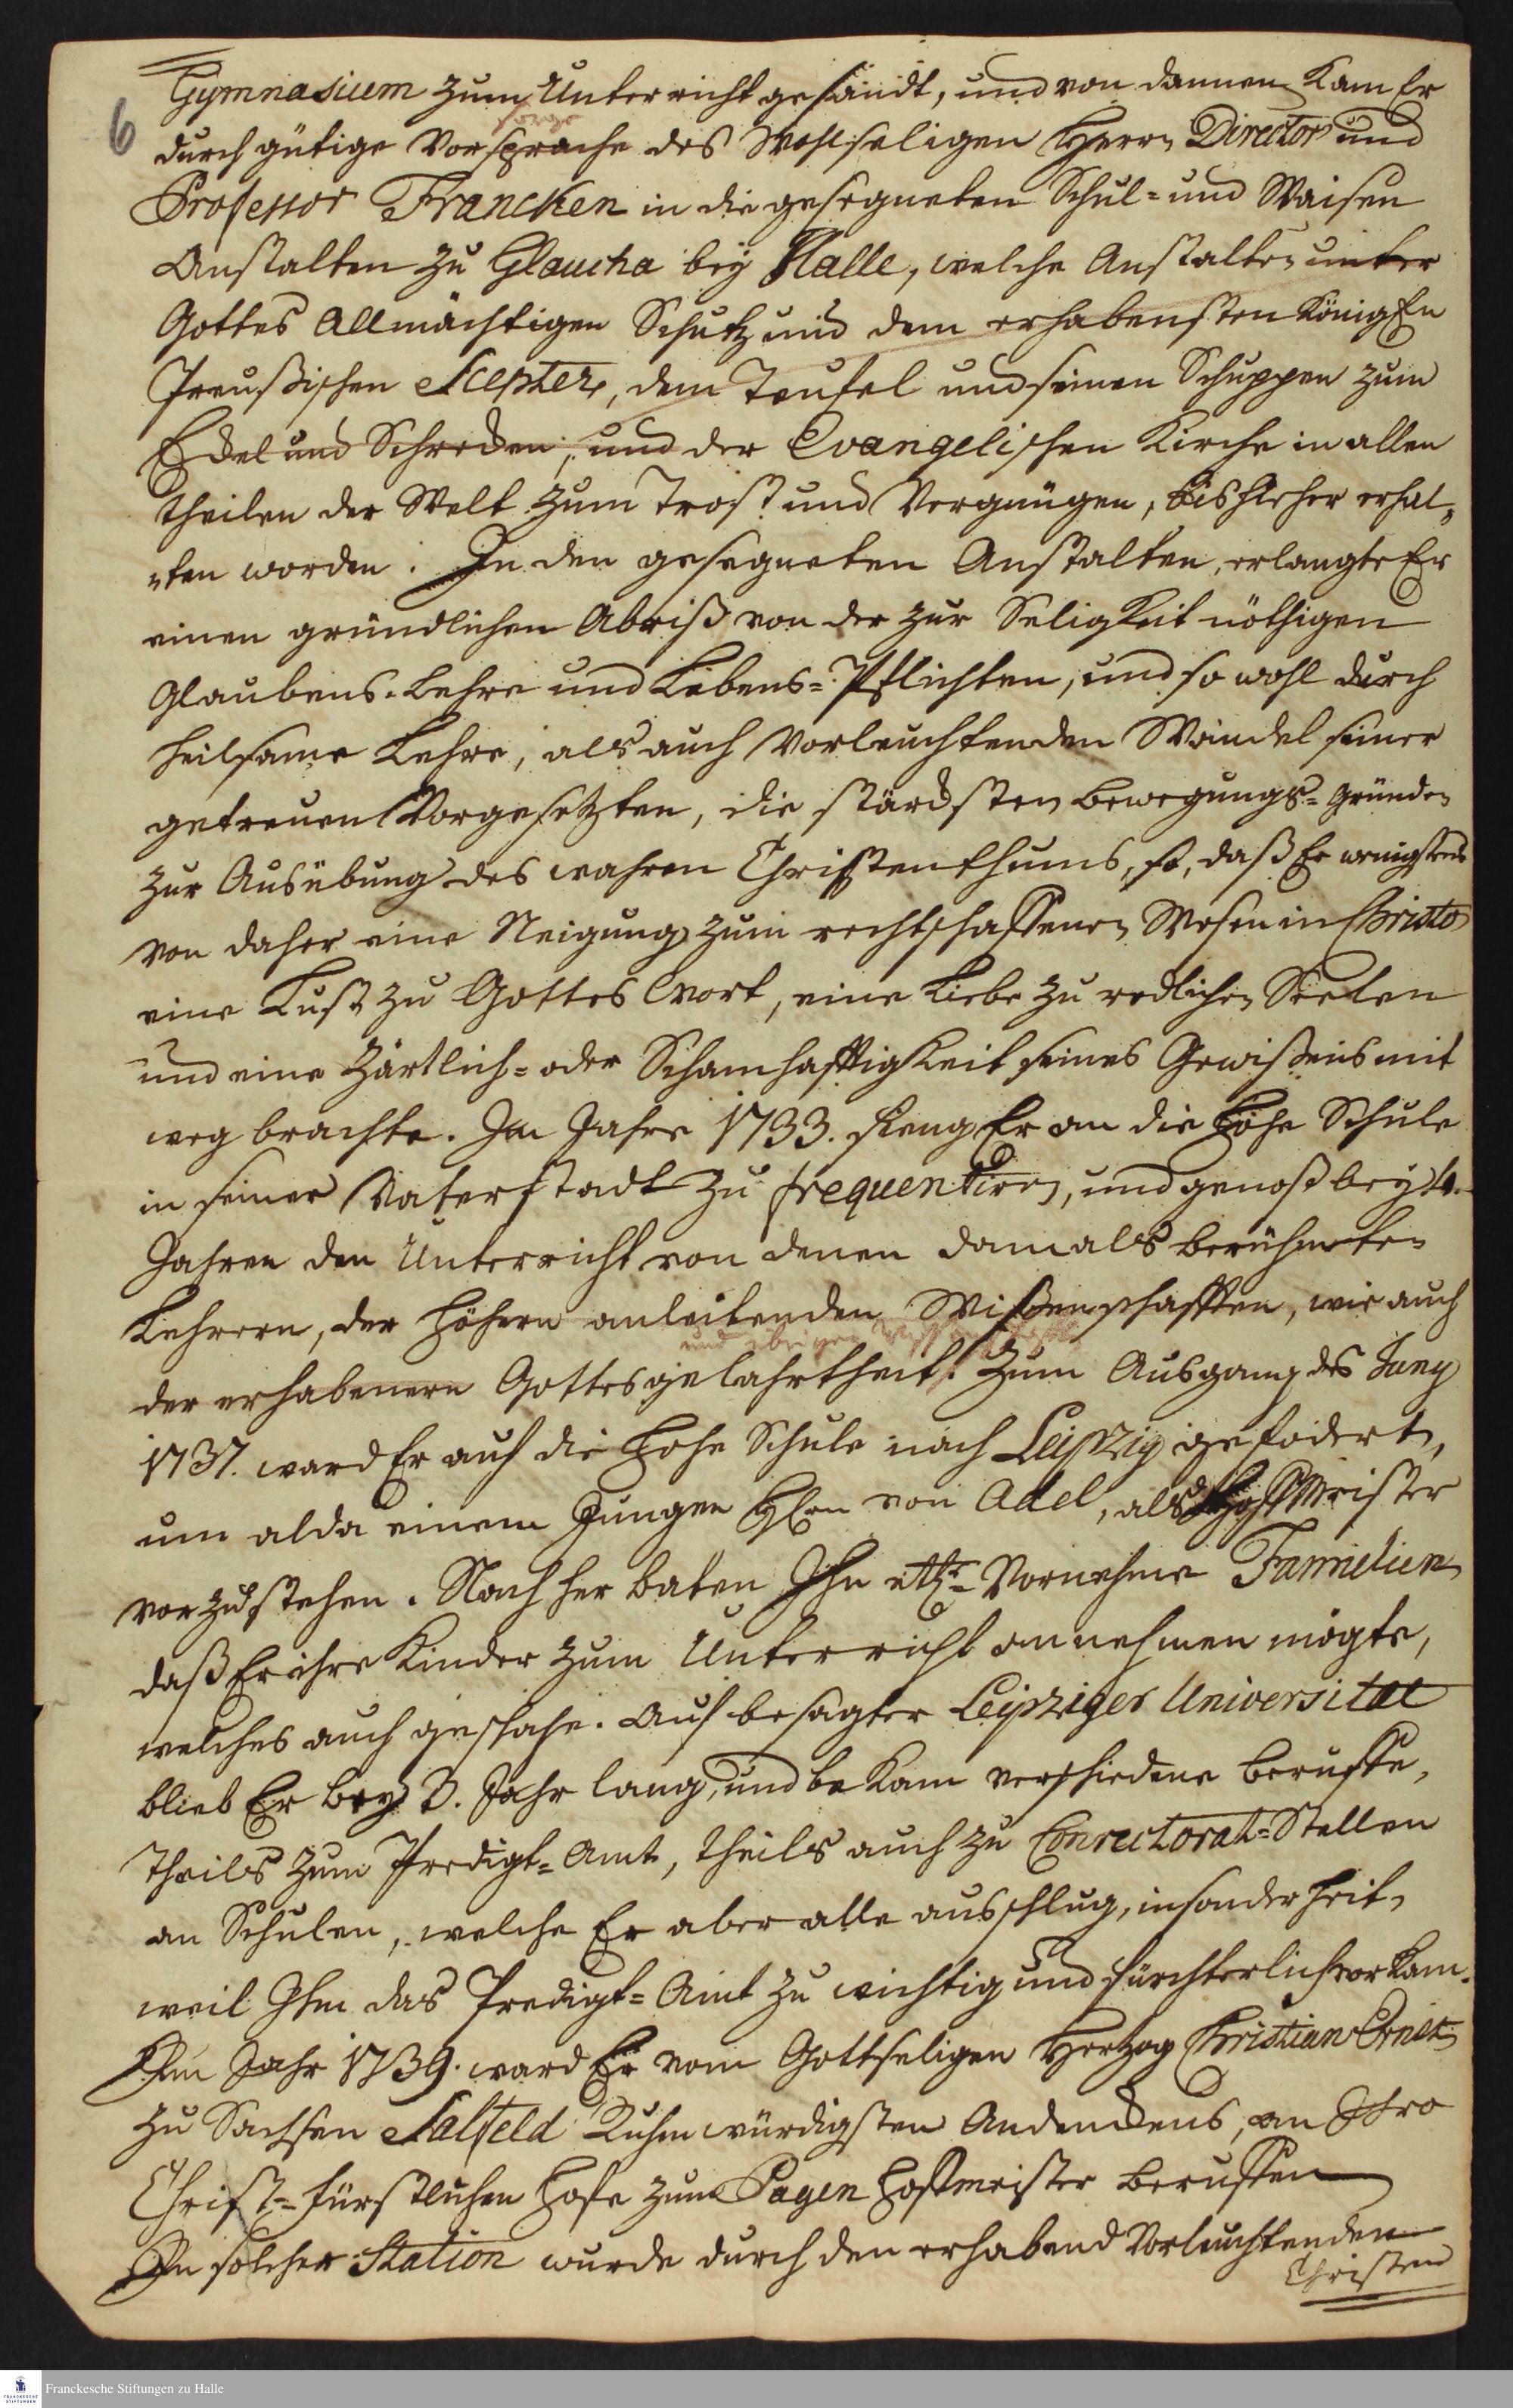 6
Gymnasium zum Unterricht gesandt, und von dannen kam Er
sorge
durch gütige Vorsprache des Wohlseligen Herrn Director und
Professor Francken in die gesegneten Schul- und Waisen
Anstalten zu Glaucha bey Halle, welche Anstalten unter
Gottes Allmächtigen Schutz und dem erhabensten König
Preußischen Scepter, dem Teufel und seinen Schuppen zum
Eckel und Schrecken, und der Evangelischen Kirche in allen
theilen der Welt zum Trost und Vergnügen, bishieher erhal-
-ten worden. In den gesegneten Anstalten, erlangte Er
einen gründlichen Abriß von der zur Seligkeit nöthigen
Glaubens-Lehre und Lebens-Pflichten, und so wohl durch
heilsame Lehre, als auch Vorleuchtenden Wandel seiner
getreuen Vorgesetzten, die stärcksten bewegungs-Gründe
zur Ausübung des wahren Christenthums, so, daß Er wenigstens
von daher eine Neigung zum rechtschaffenen Wesen in Christo
eine Lust zu Gottes Wort, eine Liebe zu redlichen Seelen
und eine Zärtlich- oder Schamhafftigkeit seines Gewißens mit
weg brachte. Im Jahre 1733. fieng Er an die Hohe Schule
in seiner Vaterstadt zu frequentiren, und genoß bey 4.
Jahren den Unterricht von denen damals berühmten
Lehrern, der höhern anleitenden Wißenschafften, wie auch
und übrigen Wissenschafft
der erhabenern Gottesgelahrtheit. Zum Ausgang des Juny
1737. ward Er auf die Hohe Schule nach Leipzig gefodert,
um alda einem Jungen Hrn von Adel, als Hoffmeister
vorzustehen. Nach her baten Ihn Vornehme Familien
daß Er ihre Kinder zum Unterricht annehmen mögte,
welches auch geschahe. Auf besagter Leipziger Universitaet
blieb Er bey 3. Jahr lang, und bekam verschiedene beruffe,
Theils zum Predigt-Amt, theils auch zu Conrectorat-Stellen
an Schulen, welche Er aber alle ausschlug, insonderheit,
weil Ihm das Predigt-Amt zu wichtig und fürchterlich vorkam.
Im Jahr 1739. ward Er vom Gottseligen Hertzog Christian Ernst
zu Sachsen Salfeld Ruhmwürdigsten Andenckens, an Ihro
Christ-Fürstlichen Hofe zum Pagen Hoffmeister beruffen
In solcher Station wurde durch den erhabend Vorleuchtenden
Christen
Franckesche Stiftungen zu Halle